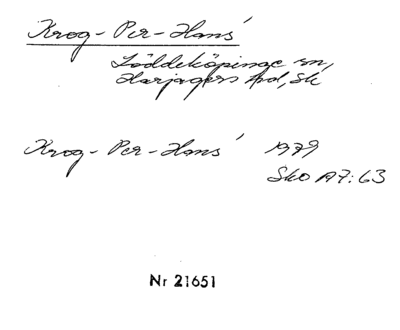 Krog-Per-Hans´
Löddeköpinge sn,
Harjagers hd, Sk
Krog-Per-Hans´ 1979
Sko A7:63
Nr 21651